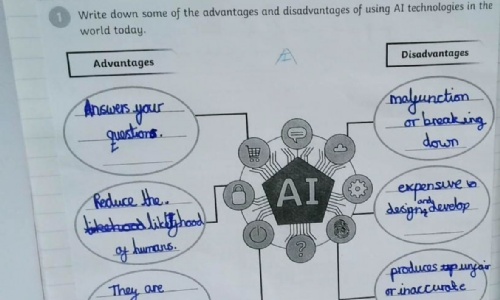 1 Write down some of the advantages and disadvantages of using AI technologies in the
world today.
Advantages
Disadvantages
Answers your
questions.
malfunction
or breaking
down
AI
Reduce the
likelihood
of humans.
expensive to
design and develop
They are
produces unfair
or inaccurate